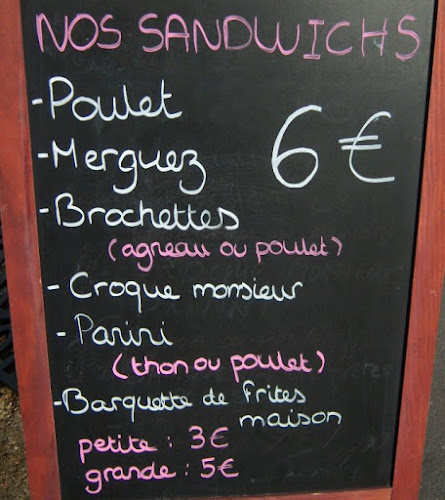 NOS SANDWICHS
- Poulet
- Merguez
6 €
- Brochettes
(agneau ou poulet)
- Croque monsieur
- Panini
(thon ou poulet)
- Barquette de frites
maison
petite : 3€
grande : 5€